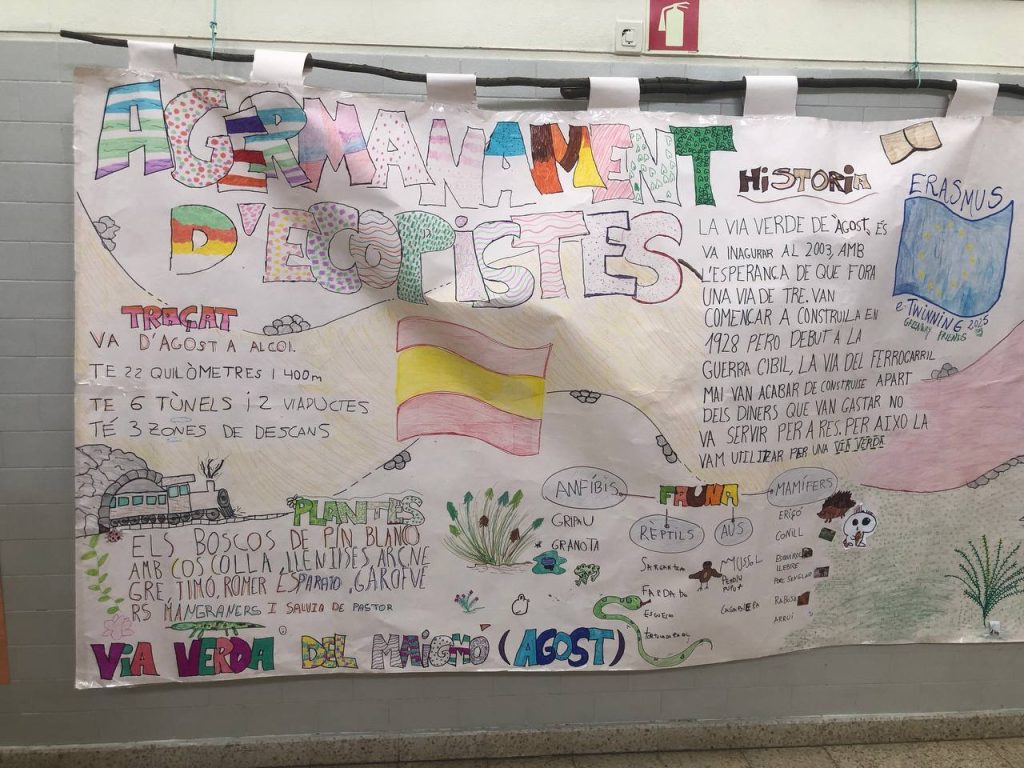 AGERMANAMENT
D'ECOPISTES
TRAÇAT
VA D'AGOST A ALCOI.
TE 22 QUILÒMETRES I 400m
TE 6 TÙNELS i 2 VIADUCTES
TÉ 3 ZONES DE DESCANS
HiSTORiA
LA VIA VERDE DE AGOST, ÉS
VA INAGURAR AL 2003, AMB
L'ESPERANÇA DE QUE FORA
UNA VIA DE TRE. VAN
COMENÇAR A CONSTRUILA EN
1928 PERO DEBUT A LA
GUERRA CIBIL, LA VIA DEL FERROCARRIL
MAI VAN ACABAR DE CONSTRUISE APART
DELS DINERS QUE VAN GASTAR NO
VA SERVIR PER A RES. PER AIXO LA
VAM UTILIZAR PER UNA VIA VERDA
ERASMUS
e-TWINNING 2025
GREENWAY FRIENDS
PLANTES
ELS BOSCOS DE PIN BLANC
AMB COSCOLLA, LLENTISES ARÇNE
GRE, TIMÓ, ROMER ESPARATO, GAROFVE
RS MANGRANERS I SALVIO DE PASTOR
FAUNA
ANFÍBIS
GRIPAU
GRANOTA
RÈPTILS
SARGANTAN
FARDATXO
AUS
MUSSOL
PERDIU
MAMÍFERS
ERIÇÓ
CONILL
LLEBRE
PORC SENGLAR
RABOSA
ARRUI
ViA VERDA DEL MAIGMÓ (AGOST)